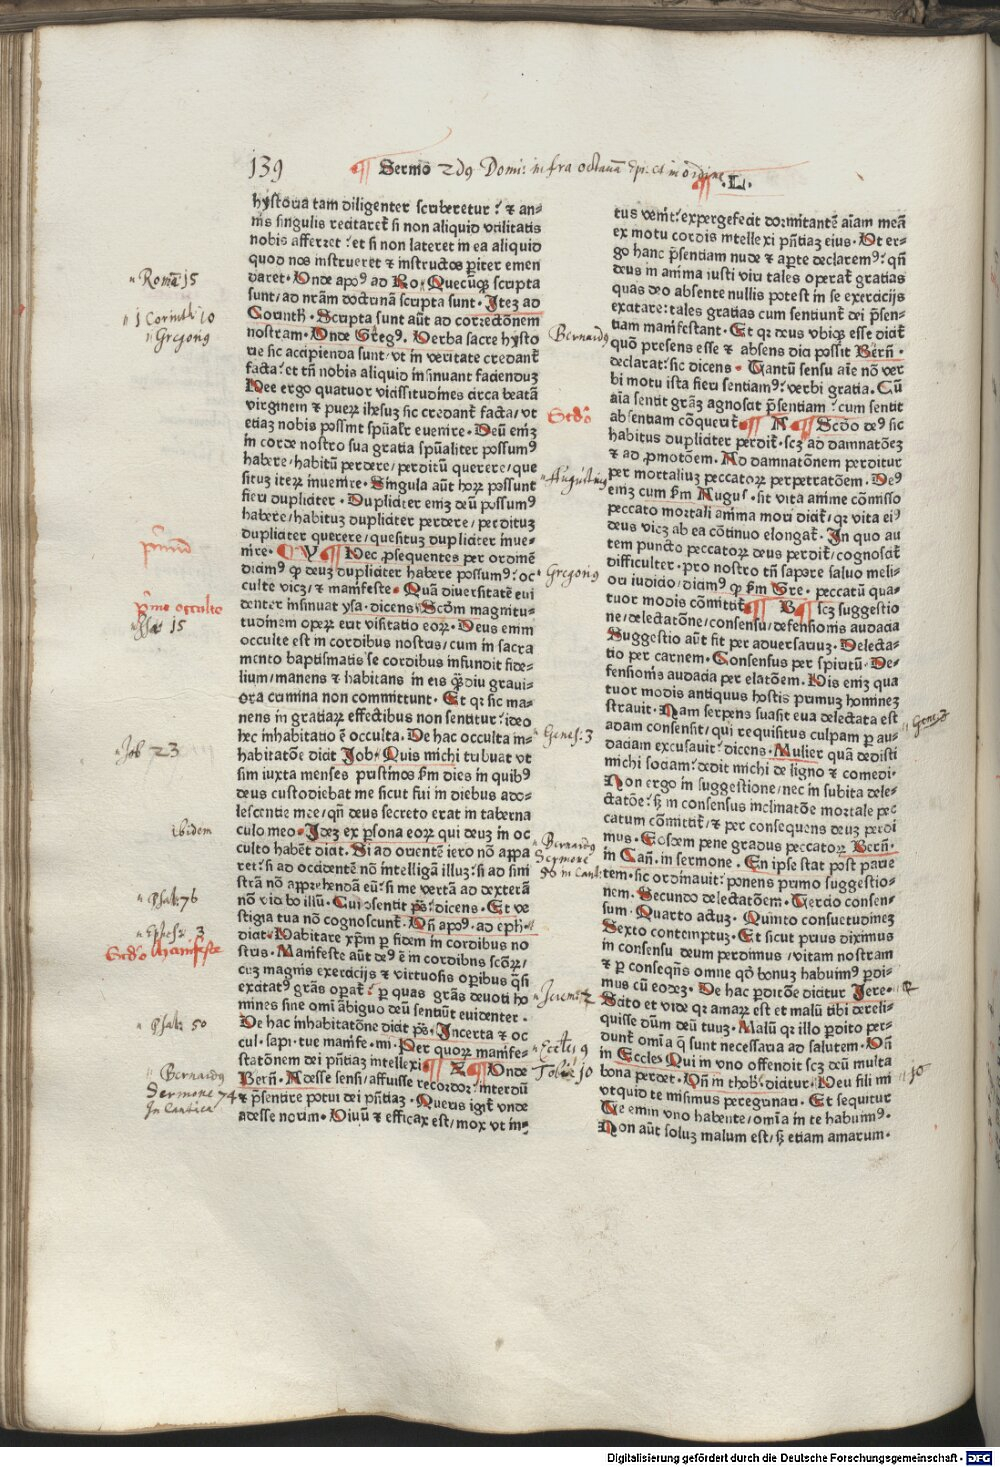 139 Sermo 2dꝰ Domi: infra octauā Epi: et in ordine .L.
hystoria tam diligenter scriberetur? ⁊ an-
nis singulis recitaret̄ si non aliquid vtilitatis
nobis afferret? et si non lateret in ea aliquid
quod nos instrueret ⁊ instructos ꝑiter emen
daret. Unde apoꝰ ad Ro. Quecūqꝫ scripta
sunt/ ad nr̄am doctrinā scripta sunt. Iteꝫ ad
Corinth. Scripta sunt aūt ad correctōnem
nostram. Unde Gregꝰ. Verba sacre hysto
rie sic accipienda sunt/ vt in veritate credant̄
facta/ et tn̄ nobis aliquid insinuant faciendū
Hec ergo quatuor vicissitudines circa beatā
virginem ⁊ pueꝝ ihesuꝫ sic credant̄ facta/ vt
etiaꝫ nobis possint spūalr̄ euenire. Deū em̄
in corde nostro sua gratia spūaliter possumꝰ
habere/ habitū perdere/ perditū querere/ que
situꝫ iteꝝ inuenire. Singula aūt hoꝝ possunt
fieri dupliciter. Dupliciter em̄ deū possumꝰ
habere/ habituꝫ dupliciter perdere/ perdituꝫ
dupliciter querere/ quesituꝫ dupliciter inue-
nire. ¶ Y ¶ Hec ꝓsequentes per ordinē
dicamꝰ ꝙ deuꝫ dupliciter habere possumꝰ: oc
culte vicꝫ/ ⁊ manifeste. Quā diuersitatē eui
denter insinuat ysa. dicens. Scd̄m magnitu-
tudinem operꝝ erat visitatio eoꝝ. Deus enim
occulte est in cordibus nostris/ cum in sacra
mento baptismatis se cordibus infundit fide-
lium/ manens ⁊ habitans in eis qꝫdiu graui-
ora crimina non committunt. Et qꝛ sic ma-
nens in gratiaꝝ effectibus non sentitur: ideo
hec inhabitatio ē occulta. De hac occulta in-
habitatōe dicit Job. Quis michi tribuat vt
sim iuxta menses pristinos ẜm dies in quibꝰ
deus custodiebat me sicut fui in diebus ado-
lescentie mee/ qn̄ deus secreto erat in taberna
culo meo. Ideꝫ ex ꝑsona eoꝝ qui deuꝫ in oc
culto habēt dicit. Si ad orientē iero nō appa
ret: si ad occidentē nō intelligā illuꝫ: si ad sini
strā nō apprehendā eū: si me vertā ad dexterā
nō videbo illū. Cui ꝯsentit ps̄. dicens. Et ve
stigia tua nō cognoscunt̄. Un̄ apoꝰ. ad eph.
dicit. Habitare xp̄m ꝑ fidem in cordibus no
stris. Manifeste aūt deꝰ ē in cordibꝰ scōꝝ/
cuꝫ magnis exercicijs ⁊ virtuosis oꝑibus q̄si
excitatꝰ grās oꝑat̄: ꝑ quas grās deuoti ho
mines sine omi ābiguo deū sentiūt euidenter.
De hac inhabitatōne dicit ps̄. Incerta ⁊ oc
cul. sapi. tue manife. mi. Per quoꝝ manife-
statōnem dei pn̄tiaꝫ intellexi ¶ Z ¶ Unde
Bern̄. Adesse sensi/ affuisse recordor: interdū
⁊ p̄sentire potui dei pn̄tiaꝫ. Queris igit̄ vnde
adesse norim. Viuū ⁊ efficax est/ mox vt in-
tus venit: expergefecit dormitantē aīam meā
ex motu cordis intellexi pn̄tiaꝫ eius. Ut er-
go hanc p̄sentiam nude ⁊ aꝑte declaremꝰ: qn̄
deus in anima iusti viri tales operat̄ gratias
quas deo absente nullis potest in se exercicijs
excitare: tales gratias cum sentiunt̄ dei p̄sen-
tiam manifestant. Et qꝛ deus vbiqꝫ esse dicit̄
quō presens esse ⁊ absens dici possit Bern̄.
declarat: sic dicens. Tantū sensu aīe nō ver
bi motu ista fieri sentiamꝰ: verbi gratia. Cū
aīa sentit grāꝫ agnoscat p̄sentiam: cum sentit
absentiam cōquerit̄ ¶ A ¶ Scd̄o deꝰ sic
habitus dupliciter perdit̄. scꝫ ad damnatōeꝫ
⁊ ad ꝓmotōem. Ad damnatōnem perditur
per mortaliuꝫ peccatoꝝ perpetratōem. Deꝰ
em̄ cum ẜm Augus. sit vita anime cōmisso
peccato mortali anima mori dicit̄/ qꝛ vita eiꝰ
deus vicꝫ ab ea cōtinuo elongat̄. In quo au
tem puncto peccatoꝝ deus perdit̄/ cognoscit̄
difficulter. pro nostro tn̄ sapore saluo meli-
ori iudicio/ dicamꝰ ꝙ ẜm Gre. peccatū qua-
tuor modis cōmittit̄ ¶ B ¶ scꝫ suggestio
ne/ delectatōne/ consensu/ defensionis audacia
Suggestio aūt fit per aduersariuꝫ. Delecta-
tio per carnem. Consensus per spiritū. De-
fensionis audacia per elatōem. His em̄ qua
tuor modis antiquus hostis primuꝫ homineꝫ
strauit. Nam serpens suasit eua delectata est
adam consensit/ qui requisitus culpam ꝑ au-
daciam excusauit: dicens. Mulier quā dedisti
michi sociam: dedit michi de ligno ⁊ comedi.
Non ergo in suggestione/ nec in subita dele-
ctatōe: sꝫ in consensus inclinatōe mortale pec
catum cōmittit̄/ ⁊ per consequens deuꝫ perdi
mus. Eosdem pene gradus peccatoꝝ Bern̄.
in Can̄. in sermone. En ipse stat post parie
tem. sic ordinauit: ponens primo suggestio-
nem. Secundo delectatōem. Tercio consen-
sum. Quarto actuꝫ. Quinto consuetudineꝫ
Sexto contemptuꝫ. Et sicut prius diximus
in consensu deum perdimus/ vitam nostram
⁊ ꝑ conseqn̄s omne qō bonuꝫ habuimꝰ ꝑdi-
mus cū eodeꝫ. De hac ꝑditōe dicitur Jere.
Scito et vide qꝛ amaꝝ est et malū tibi dereli-
quisse dūm deū tuuꝫ. Malū qꝛ illo ꝑdito per-
dunt̄ omīa q̄ sunt necessaria ad salutem. Un̄
in Eccles. Qui in vno offendit scꝫ deū multa
bona perdet. Un̄ in thob. dicitur. Heu fili mi
vtquid te misimus peregrinari. Et sequitur
Te enim vno habente/ omīa in te habuimꝰ.
Non aūt soluꝫ malum est/ sꝫ etiam amarum.
Romā 15
1 Corinth 10
Gregoriꝰ
primō
p̄mo occulte
Job 23
ibidem
Psal: 76
Ephes: 3
Scd̄o Manifeste
Psal: 50
Bernardꝰ
Sermone 74
In Cantica
Bernardꝰ
Scd̄o
Augustinꝰ
Gregoriꝰ
Genes: 3
Gene 3
Bernardꝰ
Sermone
56 in Cant:
Jerem: 2
2
Eccles 9
Tobie 10
10
Digitalisierung gefördert durch die Deutsche Forschungsgemeinschaft - DFG